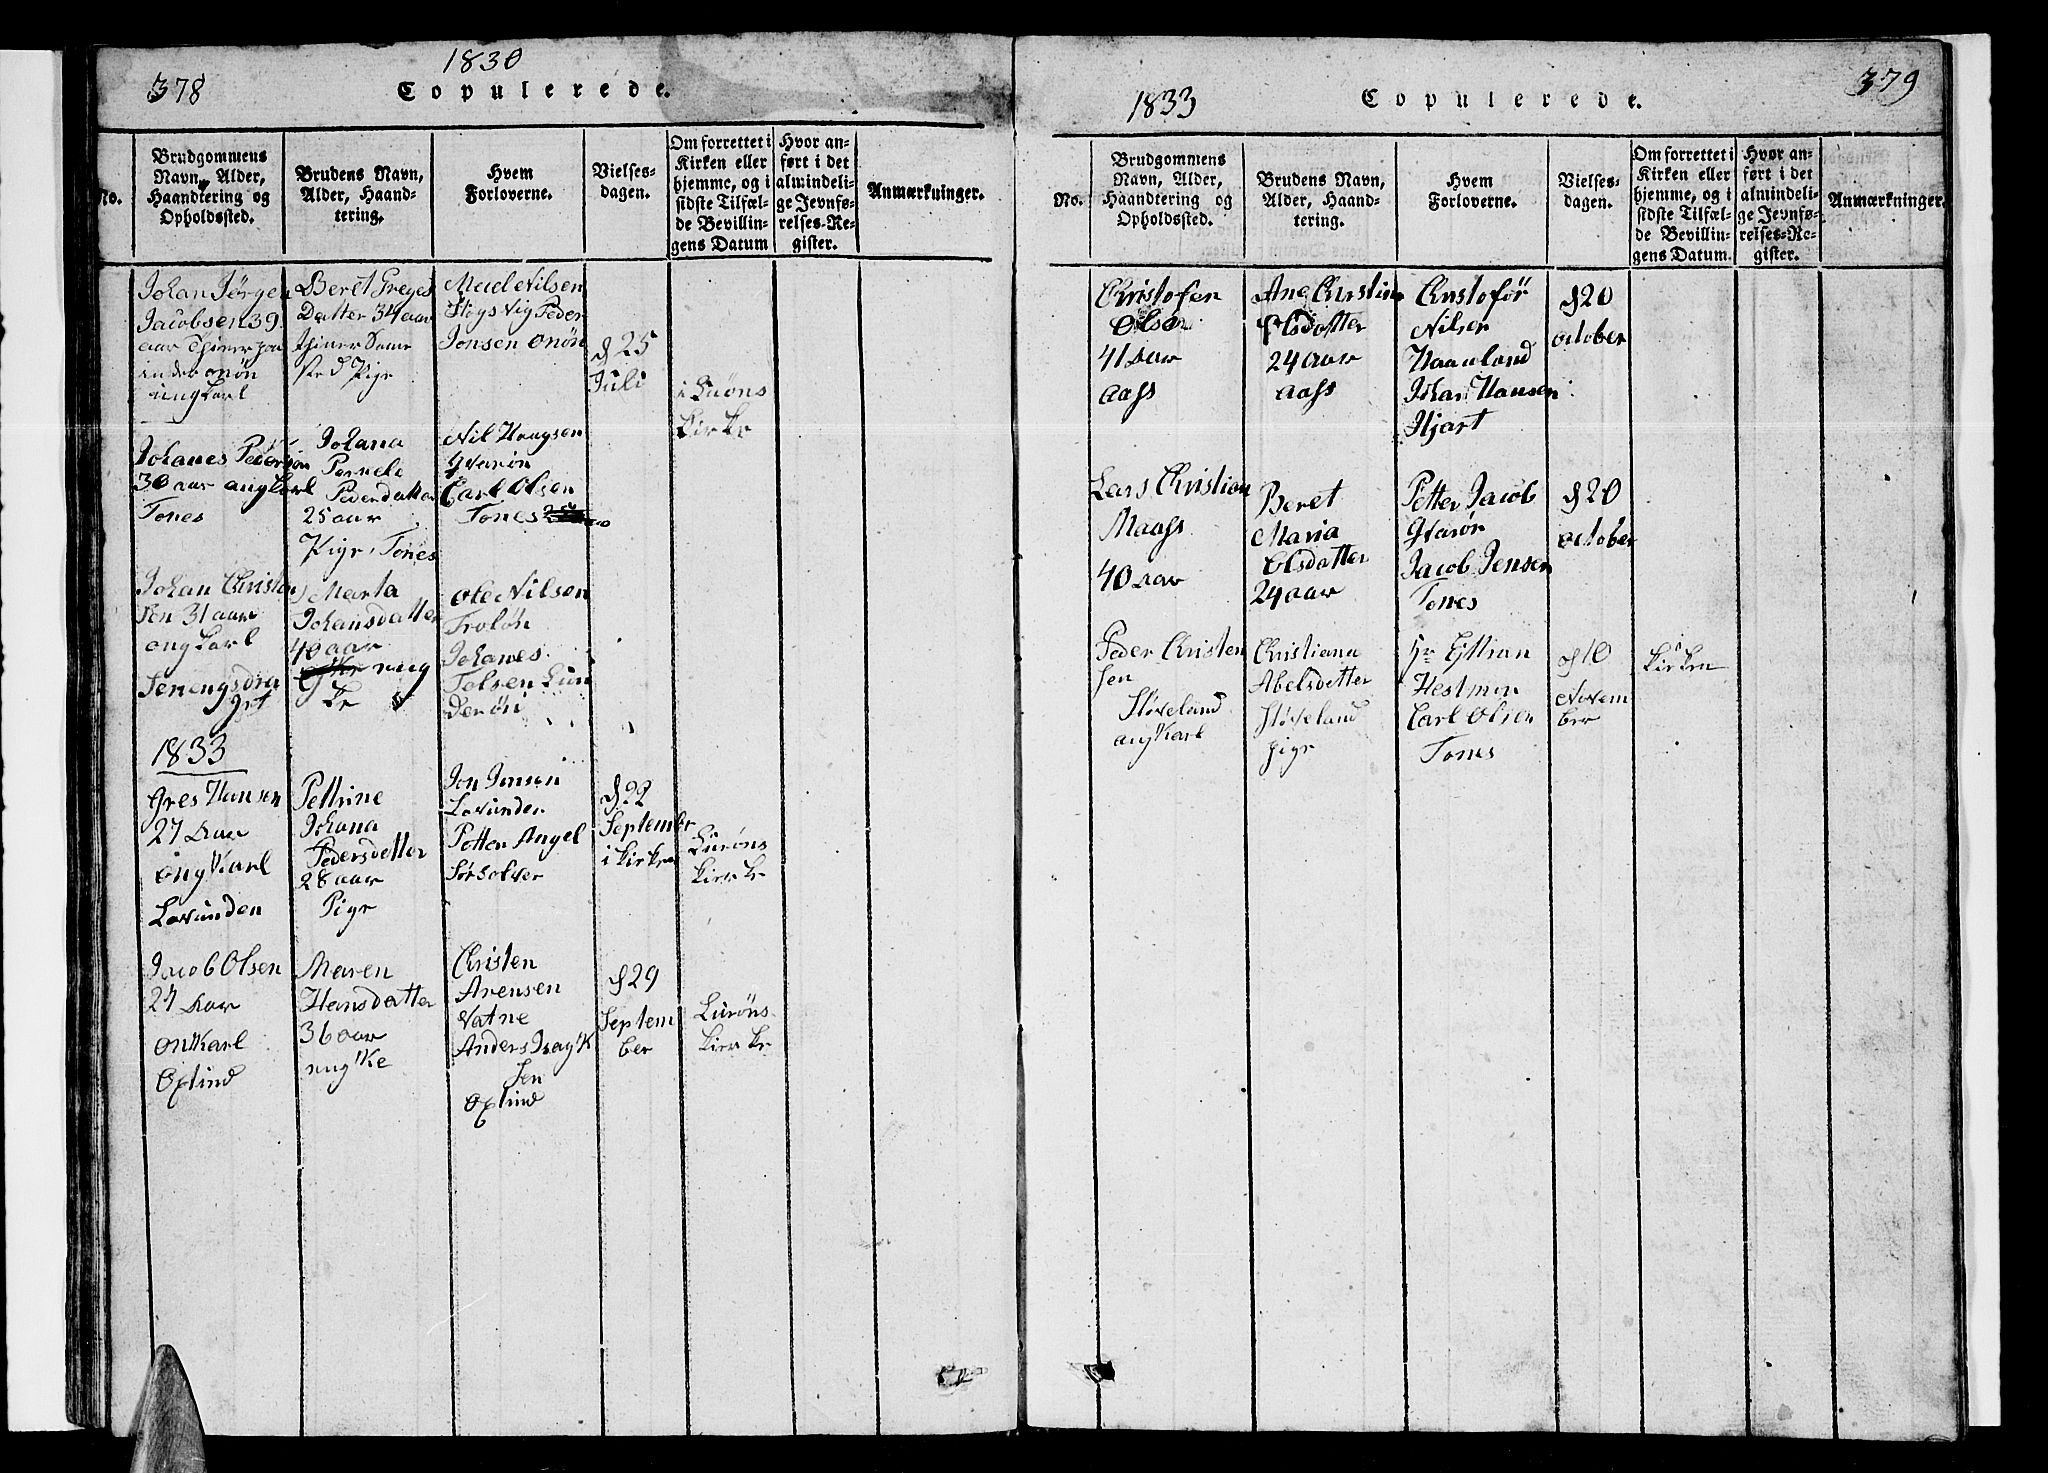 378
1830
Copulerede.
No.
Brudgommens
Navn, Alder,
Haandtering og
Opholdssted.
Brudens Navn,
Alder, Haand-
tering.
Hvem
Forloverne.
Vielses-
dagen.
Om forrettet i
Kirken eller
hjemme, og i
sidste Tilfæl-
de Bevillin-
gens Datum
Hvor an-
ført i det
almindeli-
ge Jevnfø-
relses-Re-
gister.
Anmærkninger.
Johan Jørgen
Jacobsen 39
aar
onøn
ungkarl
Beret Greges
Datter 34 aar
Pige
Nilsen
Peder
Jensen Onøn
d 25
Juli
i Luøns
Kirke
Johanes Pedersøn
30 aar ongkarl
Tones
Johana
Pernele
Pedersdatter
25 aar
Pige Tones
Nil Haugsen
Qvarøn
Carl Olsen
Tones
Johan Christen
Sen 31 aar
ongkarl
Marta
Johansdatter
40 aar
ke
Ole Nilsen
Froløn
Johanes
Lun
derøn
1833
Gres Hansen
27 Aar
ongKarl
Lovunden
Pettrine
Johana
Pedersdatter
28 aar
Pige
Jon Jensen
Lovunder
Petter Angel
Sørsolver
d 22
September
i kirken
Lurøns
kierke
Jacob Olsen
27 Aar
onKarl
Oxtind
Maren
Hansdatter
36 aar
Christen
Arensen
Vatne
Anders Isagk
Sen
Oxtind
d 29
Septem
ber
Lurøns
kierke
379
1833
Copulerede.
No.
Brudgommens
Navn, Alder,
Haandtering og
Opholdssted.
Brudens Navn,
Alder, Haand-
tering.
Hvem
Forloverne.
Vielses-
dagen.
Om forrettet i
Kirken eller
hjemme, og i
sidste Tilfæl-
de Bevillin-
gens Datum.
Hvor an-
ført i det
almindeli-
ge Jevnfø-
relses-Re-
gister.
Anmærkninger.
Christofer
Olsen
41 Aar
aass
Ane Christine
Elsdatter
24 aar
aass
Christofør
Nilsen
Haanland
Johan Hansen
Hjart
d 20
october
Lars Christian
Maass
40 Aar
Beret
Maria
Olsdatter
24 aar
Petter Jacob
Qvarør
Jacob Jensen
Tones
d 20
october
Peder Christen
sen
Støveland
ongKarl
Christiana
Abelsdatter
Støveland
pige
Hestmon
Carl Olsen
Tones
d 10
Novem
ber
kirken